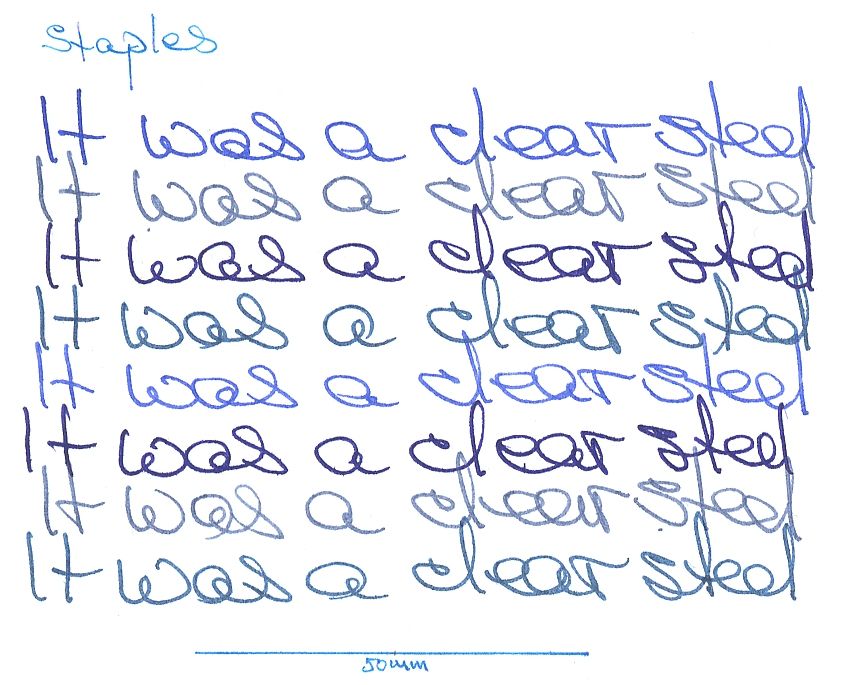 Staples
It was a clear steel
It was a clear steel
It was a clear steel
It was a clear steel
It was a clear steel
It was a clear steel
It was a clear steel
It was a clear steel
50mm